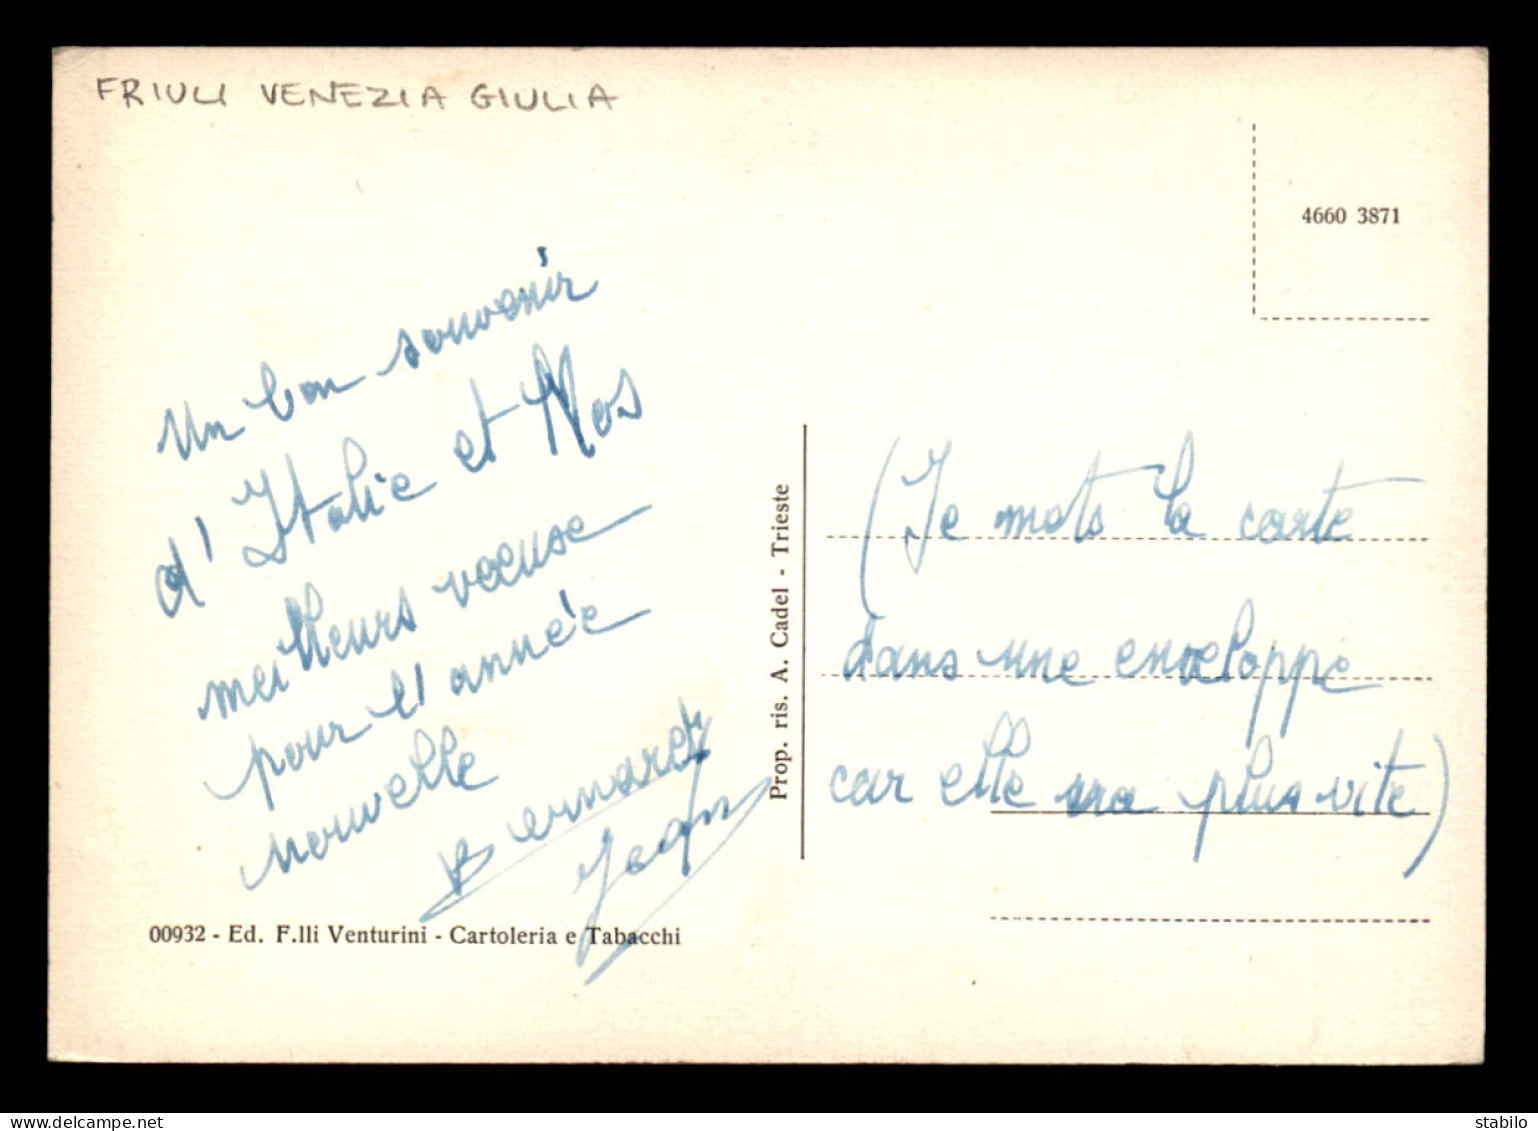 FRIULI VENEZIA GIULIA
4660 3871
Un bon souvenir
d'Italie et Nos
meilleurs voeuse
pour l'année
nouvelle
Bernard
Jean
00932 - Ed. F.lli Venturini - Cartoleria e Tabacchi
Prop. ris. A. Cadel - Trieste
(Je mets la carte
dans une enveloppe
car elle va plus vite)
www.delcampe.net
stabilo